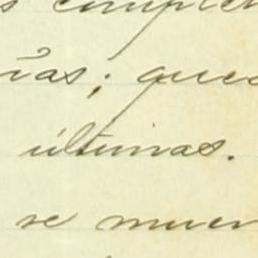 s complet
ías; ques
últimas.
se muer